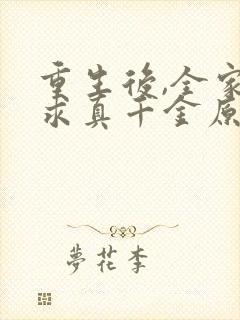 重生後,全家
求真千金原
夢花李